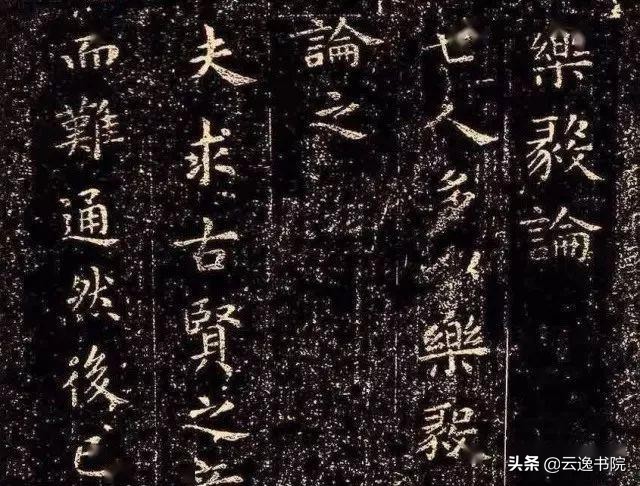 樂毅論
人多以樂毅
論之
夫求古賢之意
而難通然後已
头条 @云逸书院